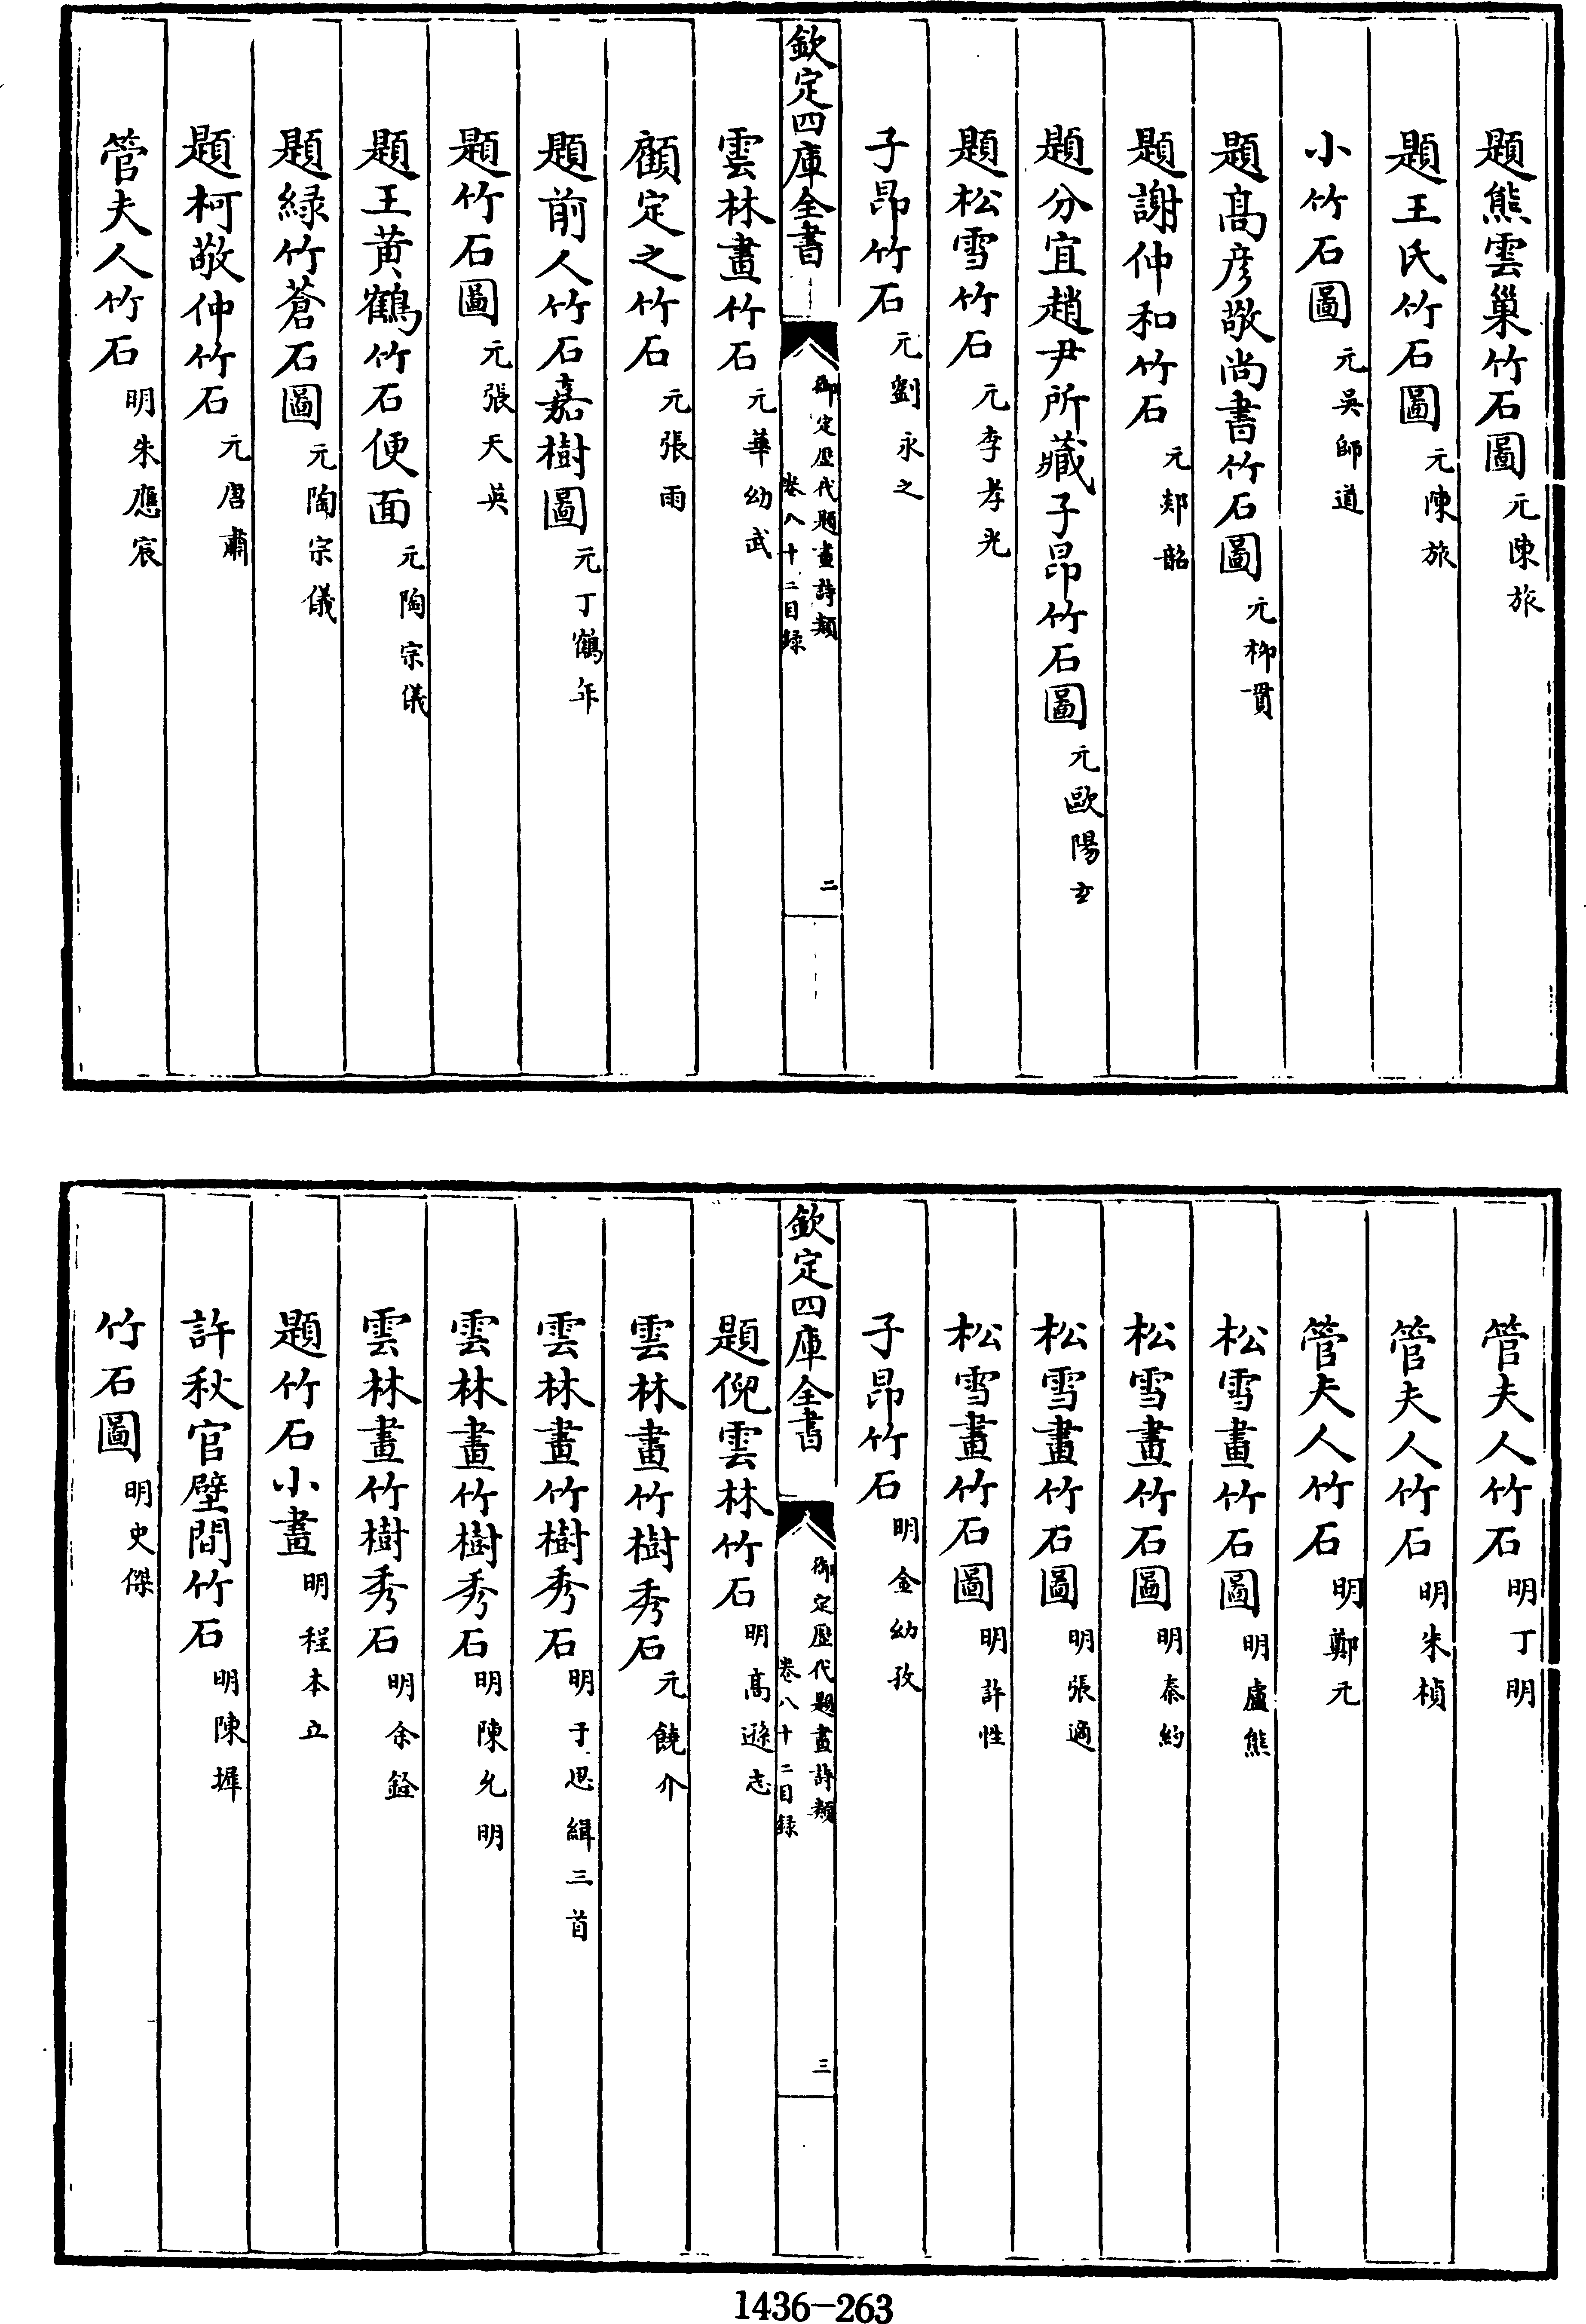 題熊雲巢竹石圖 元陳旅
題王氏竹石圖 元陳旅
小竹石圖 元吳師道
題高彦敬尚書竹石圖 元栁貫
題謝仲和竹石 元郯韶
題分宜趙尹所藏子昂竹石圖 元歐陽玄
題松雪竹石 元李孝光
子昂竹石 元劉永之
欽定四庫全書
御定歴代題畫詩類
卷八十二目録
二
雲林畫竹石 元華幼武
顧定之竹石 元張雨
題前人竹石嘉樹圖 元丁鶴年
題竹石圖 元張天英
題王黄鶴竹石便面 元陶宗儀
題緑竹蒼石圖 元陶宗儀
題柯敬仲竹石 元唐肅
管夫人竹石 明朱應宸
管夫人竹石 明丁明
管夫人竹石 明朱楨
管夫人竹石 明鄭元
松雪畫竹石圖 明盧熊
松雪畫竹石圖 明秦約
松雪畫竹石圖 明張適
松雪畫竹石圖 明許性
子昂竹石 明金幼孜
欽定四庫全書
御定歴代題畫詩類
卷八十二目録
三
題倪雲林竹石 明高遜志
雲林畫竹樹秀石 元饒介
雲林畫竹樹秀石 明于思緝三首
雲林畫竹樹秀石 明陳允明
雲林畫竹樹秀石 明余銓
題竹石小畫 明程本立
許秋官壁間竹石 明陳墀
竹石圖 明史傑
1436-263